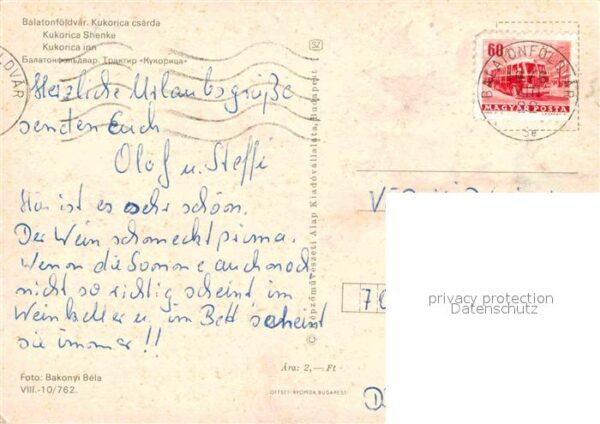 Balatonföldvár. Kukorica csárda
Kukorica Shenke
Kukorica inn
Балатонфёльдвар. Трактир «Кукорица»
Herzliche Urlaubsgrüße
senden Euch
Olaf u. Steffi
Hier ist es sehr schön.
Der Wein schmeckt prima.
Wenn die Sonne auch noch
nicht so richtig scheint im
Weinkeller u. im Bett scheint
sie immer!!
Foto: Bakonyi Béla
VIII.-10/762.
© Képzőművészeti Alap Kiadóvállalata, Budapest
Ára: 2,— Ft
OFFSET-NYOMDA BUDAPEST
60
MAGYAR POSTA
BALATONFÖLDVÁR
privacy protection
Datenschutz